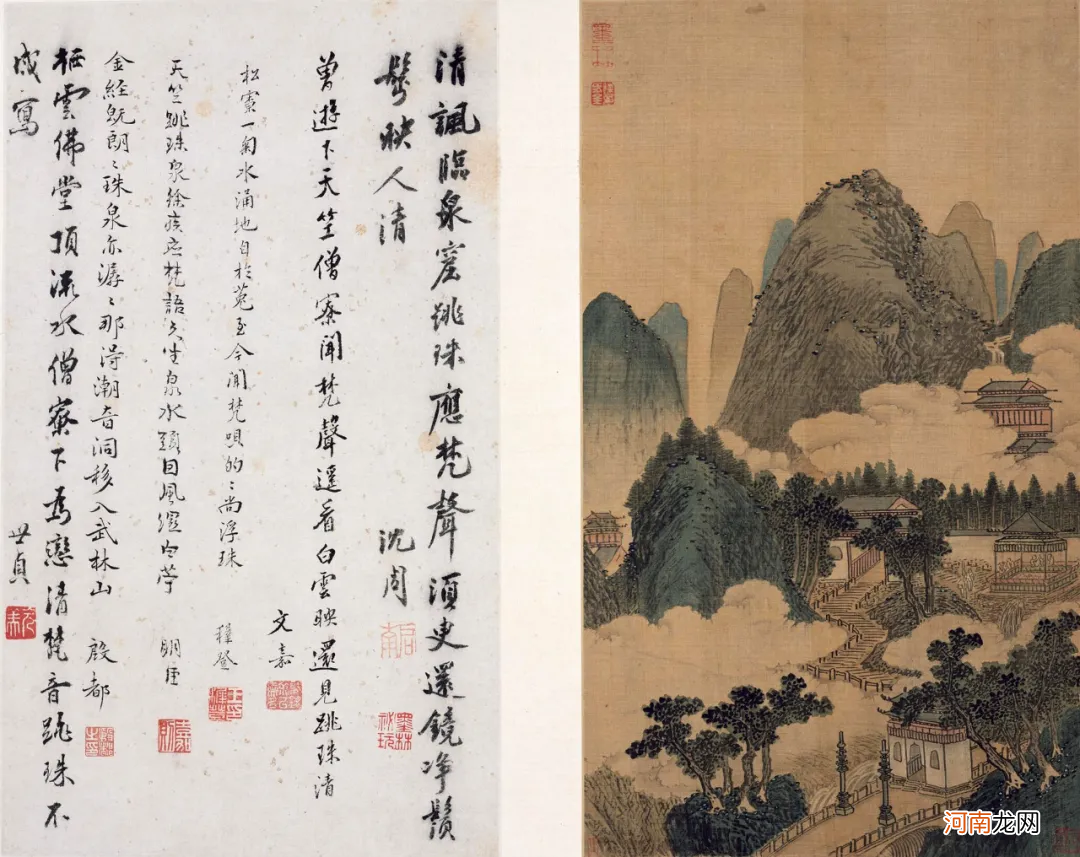 清諷臨泉窟跳珠應梵聲須臾還鏡净鬚
髩映人清 沈周
啟南
墨林秘玩
曾遊下天竺僧寮聞梵聲遥看白雲映還見跳珠清
文嘉
松寮一菊水涌地自於菟至今聞梵唄的〻尚浮珠
穉登
天竺跳珠泉徐疾应梵語 生泉水頭 風
明臣
金経既朗〻珠泉亦潺〻那淂潮音洞移入武林山 殷都
栖雲佛堂頂流水僧寮下為戀清梵音跳珠不
成寫 世貞
河南龙网